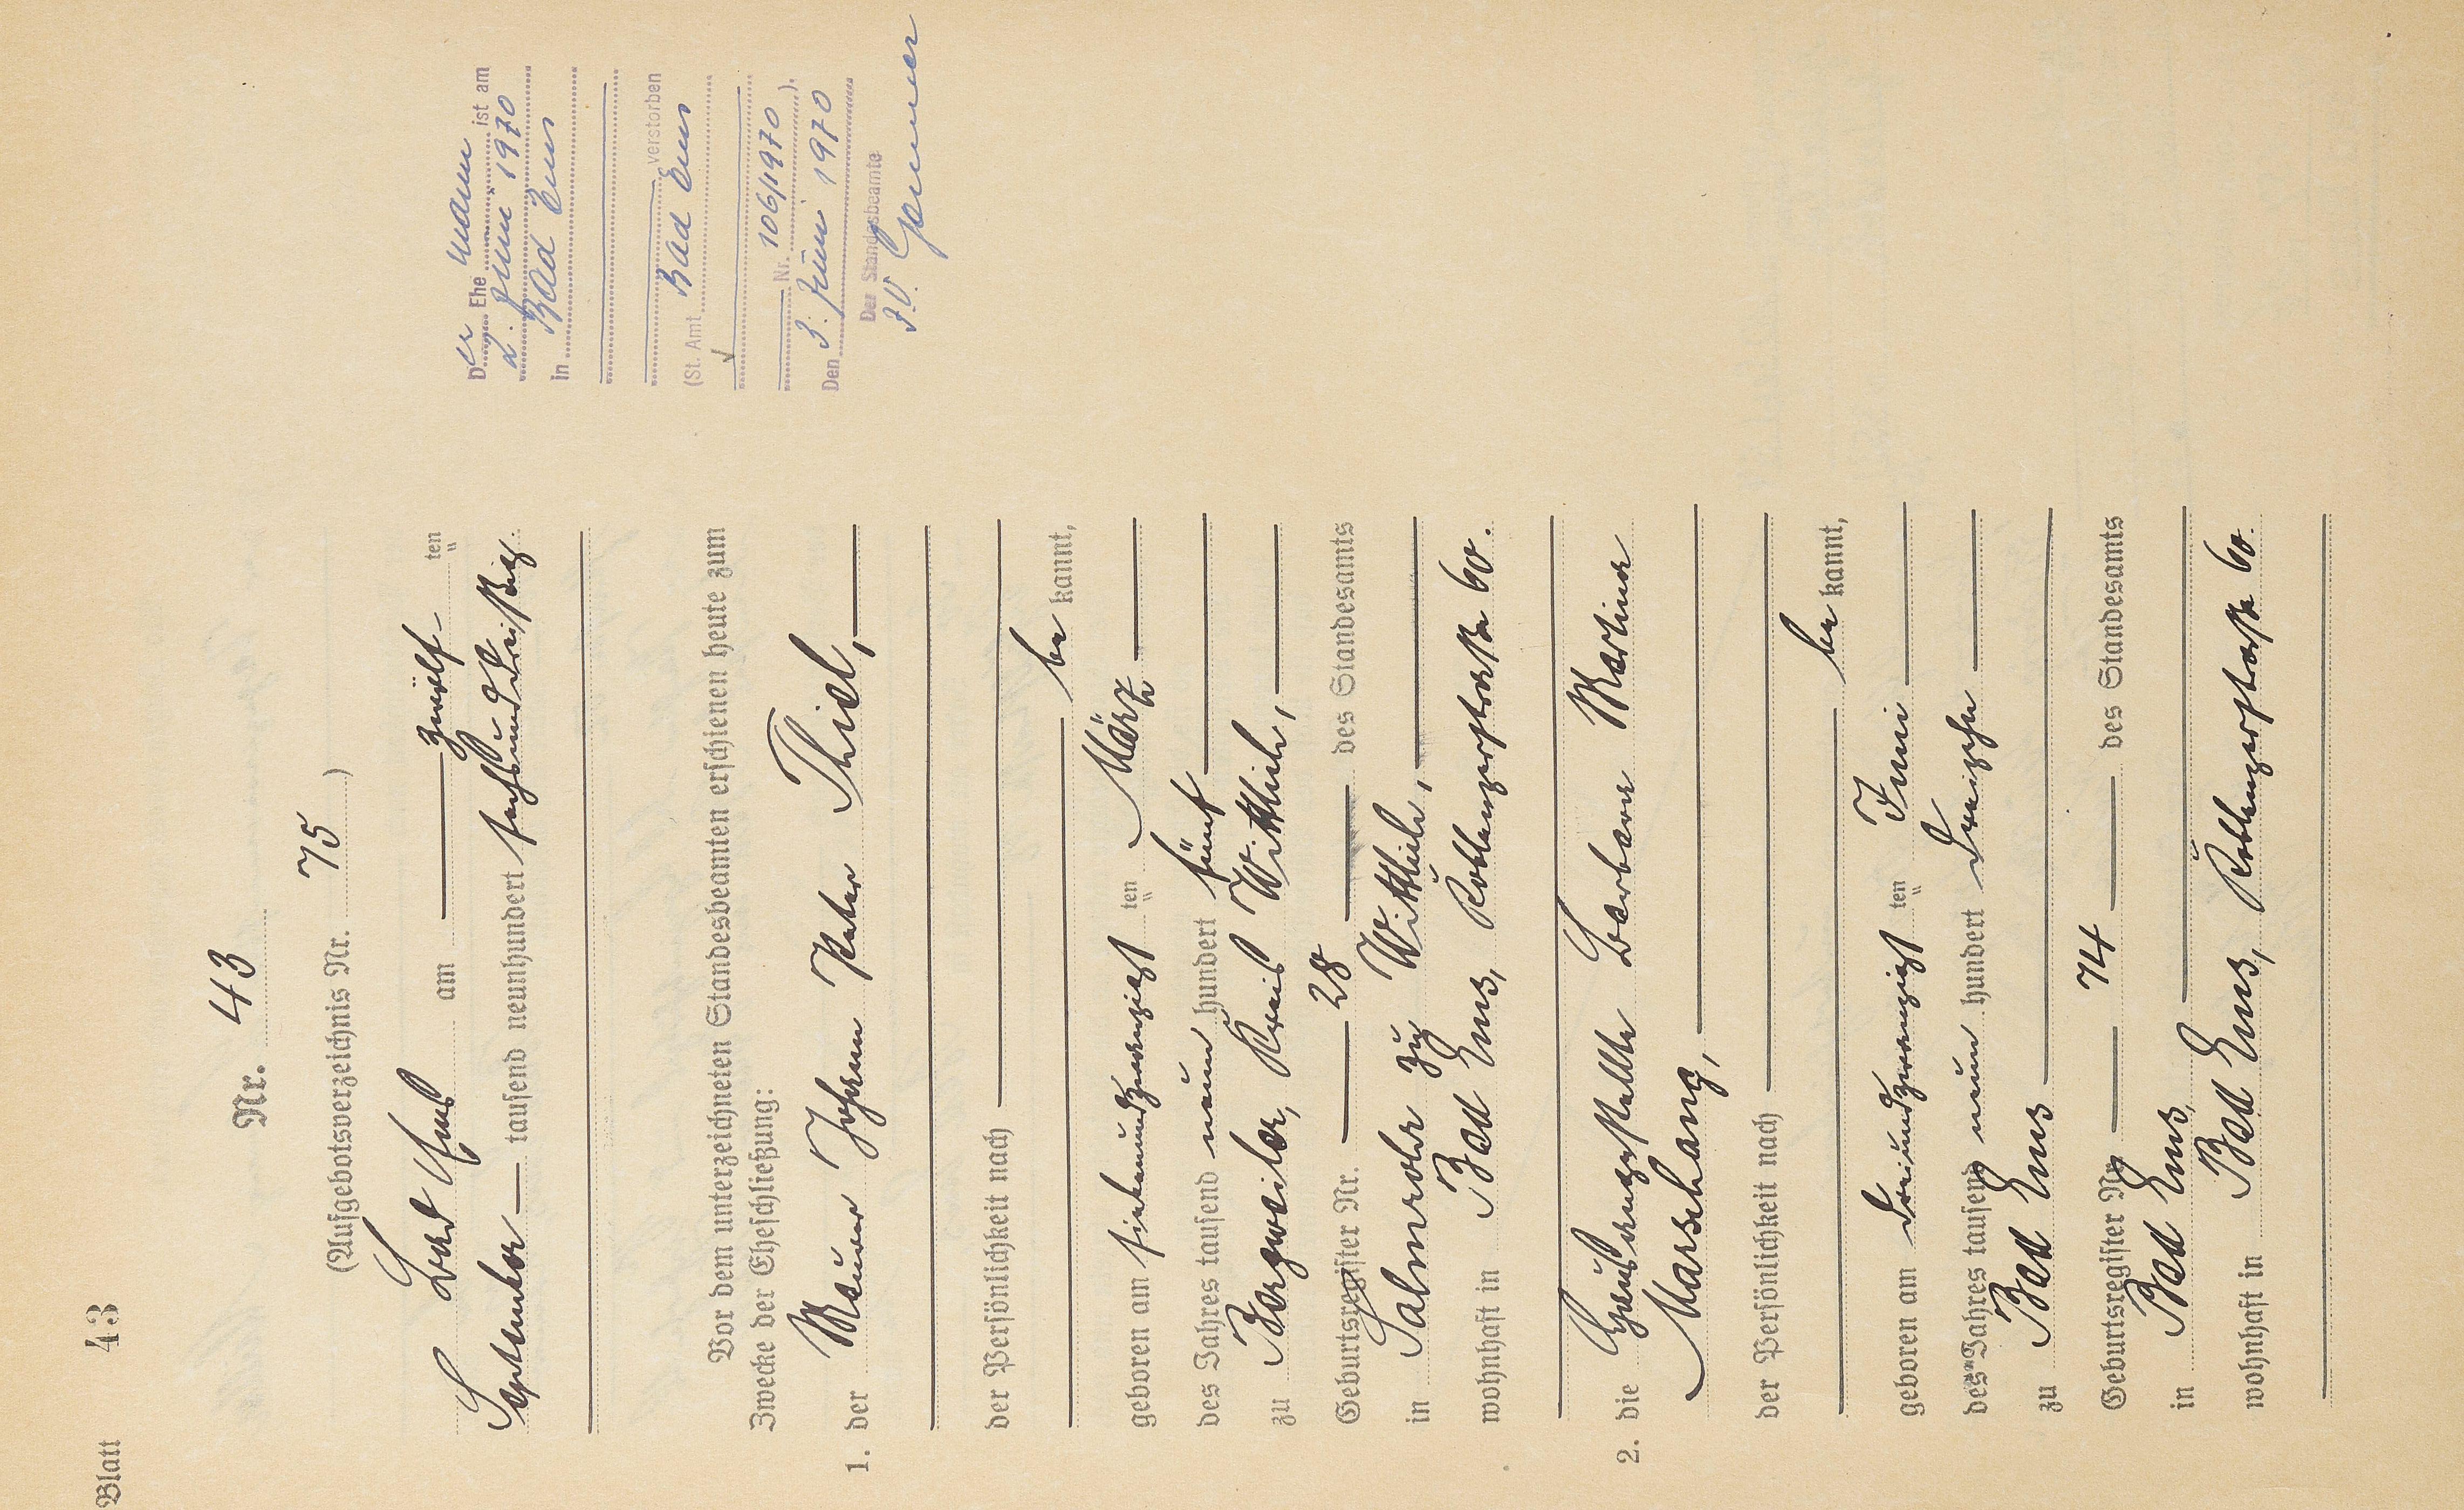 Blatt 43
Nr. 43
(Aufgebotsverzeichnis Nr. 75)
Bad Ems am zwölf- ten
September tausend neunhundert sechsunddreißig.
Vor dem unterzeichneten Standesbeamten erschienen heute zum
Zwecke der Eheschließung:
1. der Maurer Johann Peter Thiel,
der Persönlichkeit nach
be kannt,
geboren am siebenundzwanzigst ten März
des Jahres tausend neun hundert fünf
zu Bergweiler, Kreis Wittlich,
Geburtsregister Nr. 28 des Standesamts
in Salmrohr zu Wittlich,
wohnhaft in Bad Ems, Koblenzerstraße 60.
2. die Hausangestellte Barbara Martina
Marschang,
der Persönlichkeit nach
be kannt,
geboren am dreiundzwanzigst ten Juni
des Jahres tausend neun hundert dreizehn
zu Bad Ems
Geburtsregister Nr. 74 des Standesamts
in Bad Ems,
wohnhaft in Bad Ems, Koblenzerstraße 60.
Der Ehe mann ist am
2. Juni 1970
in Bad Ems
verstorben
(St. Amt Bad Ems
Nr. 106/1970 ).
Den 3. Juni 1970
Der Standesbeamte
J.V.